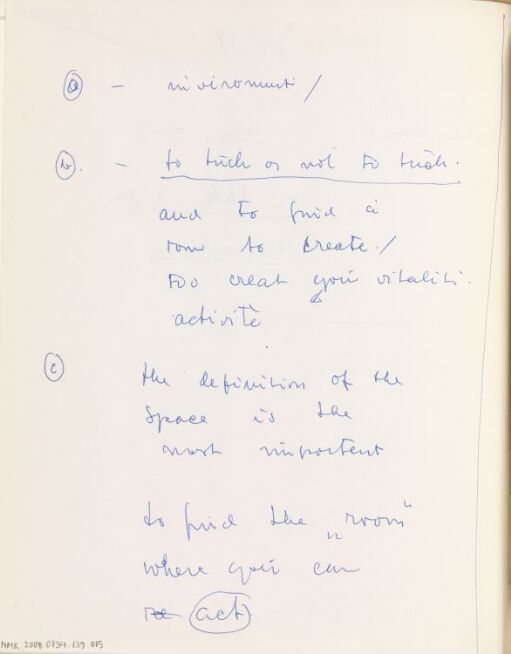 (a) - inviroment /
(b). - to tuch or not to tuch.
and to find a
room to create. /
too creat your vitaliti.
activitè
(c) the definition of the
Space is the
most importent
to find the „room"
where your can
act
NMK.2008.0734.139.015